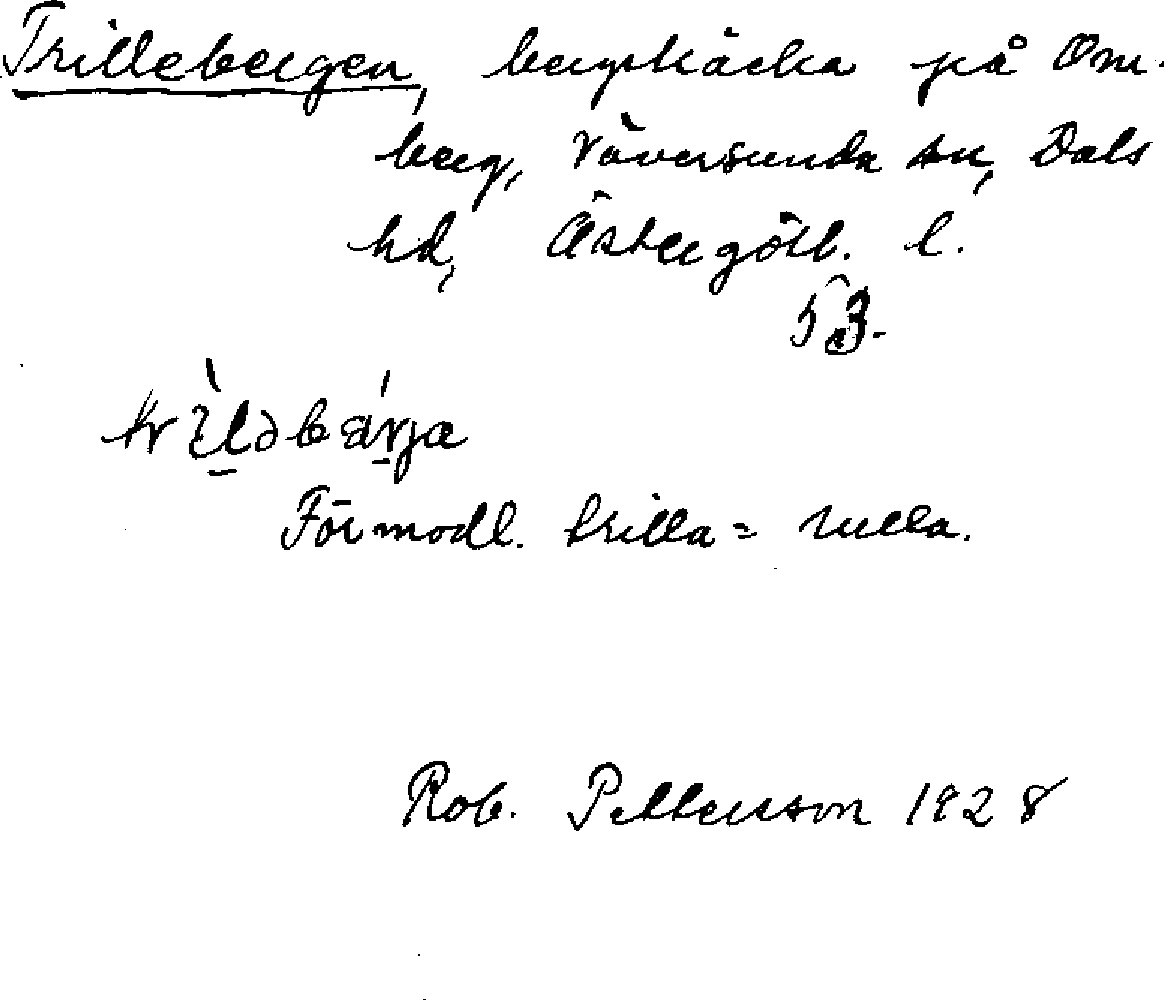 Trillebergen, bergsträcka på Om-
berg, Väversunda sn, Dals
hd, Östergötl. l.
53.
Förmodl. trilla = rulla.
Rob. Pettersson 1928